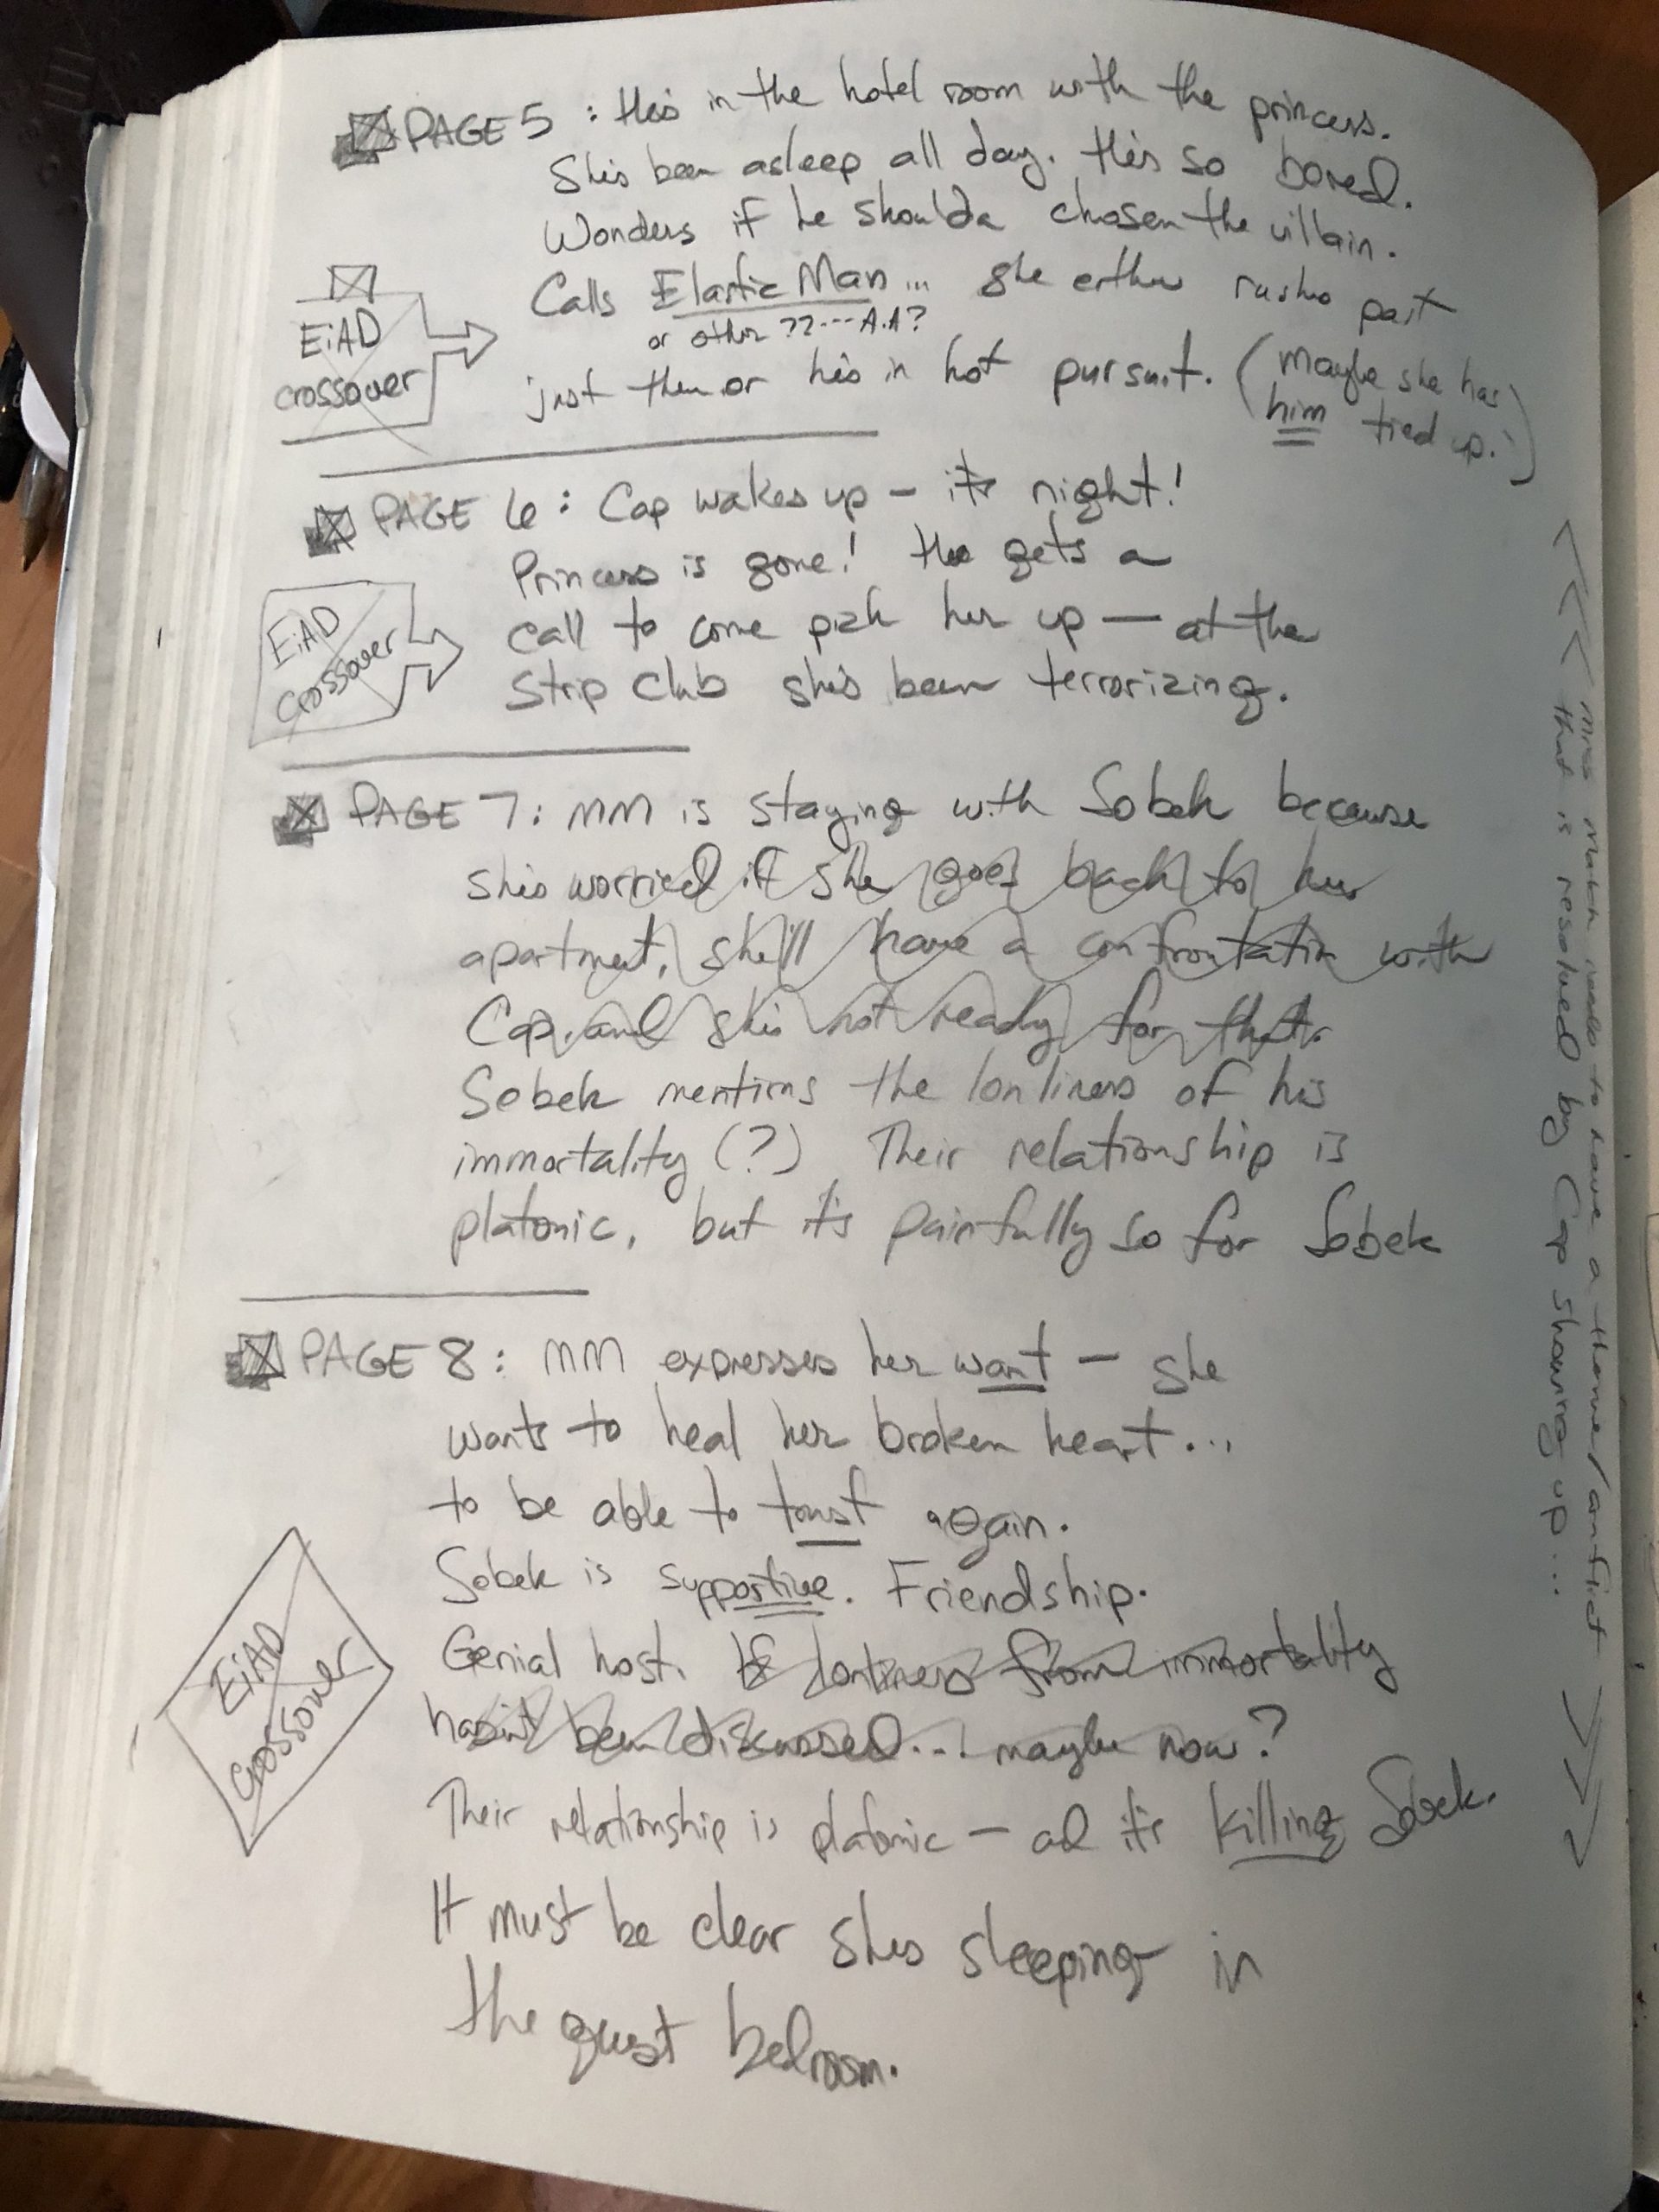 PAGE 5 : He's in the hotel room with the princess.
She's been asleep all day. He's so bored.
Wonders if he shoulda chosen the villain.
Calls Elastic Man... she either rushes past
or other ??... A.A?
just then or he's in hot pursuit. (Maybe she has
him tied up.)
EiAD
crossover
PAGE 6 : Cap wakes up — it's night!
Princess is gone! He gets a
call to come pick her up — at the
strip club she's been terrorizing.
EiAD
crossover
PAGE 7 : MM is staying with Sobek because
she's worried if she goes back to her
apartment, she'll have a confrontation with
Cap and she's not ready for that.
Sobek mentions the lonliness of his
immortality (?) Their relationship is
platonic, but it's painfully so for Sobek
PAGE 8 : MM expresses her want — she
wants to heal her broken heart...
to be able to trust again.
Sobek is supportive. Friendship.
Genial host. If lonliness from immortality
hasn't been discussed... maybe now?
Their relationship is platonic — and it's killing Sobek.
It must be clear she's sleeping in
the guest bedroom.
EiAD
crossover
<<< Miss Match needs to have a theme/conflict
that is resolved by Cap showing up... >>>